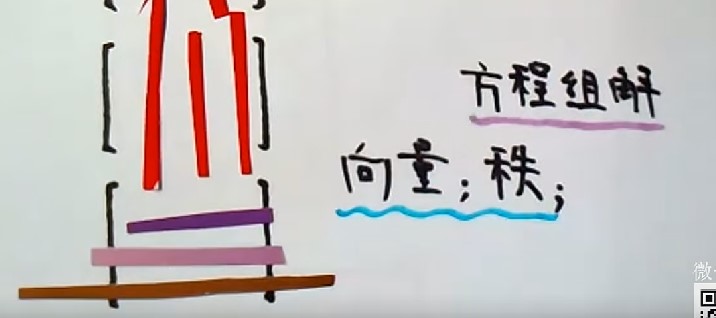 方程组解
向量；秩；
微